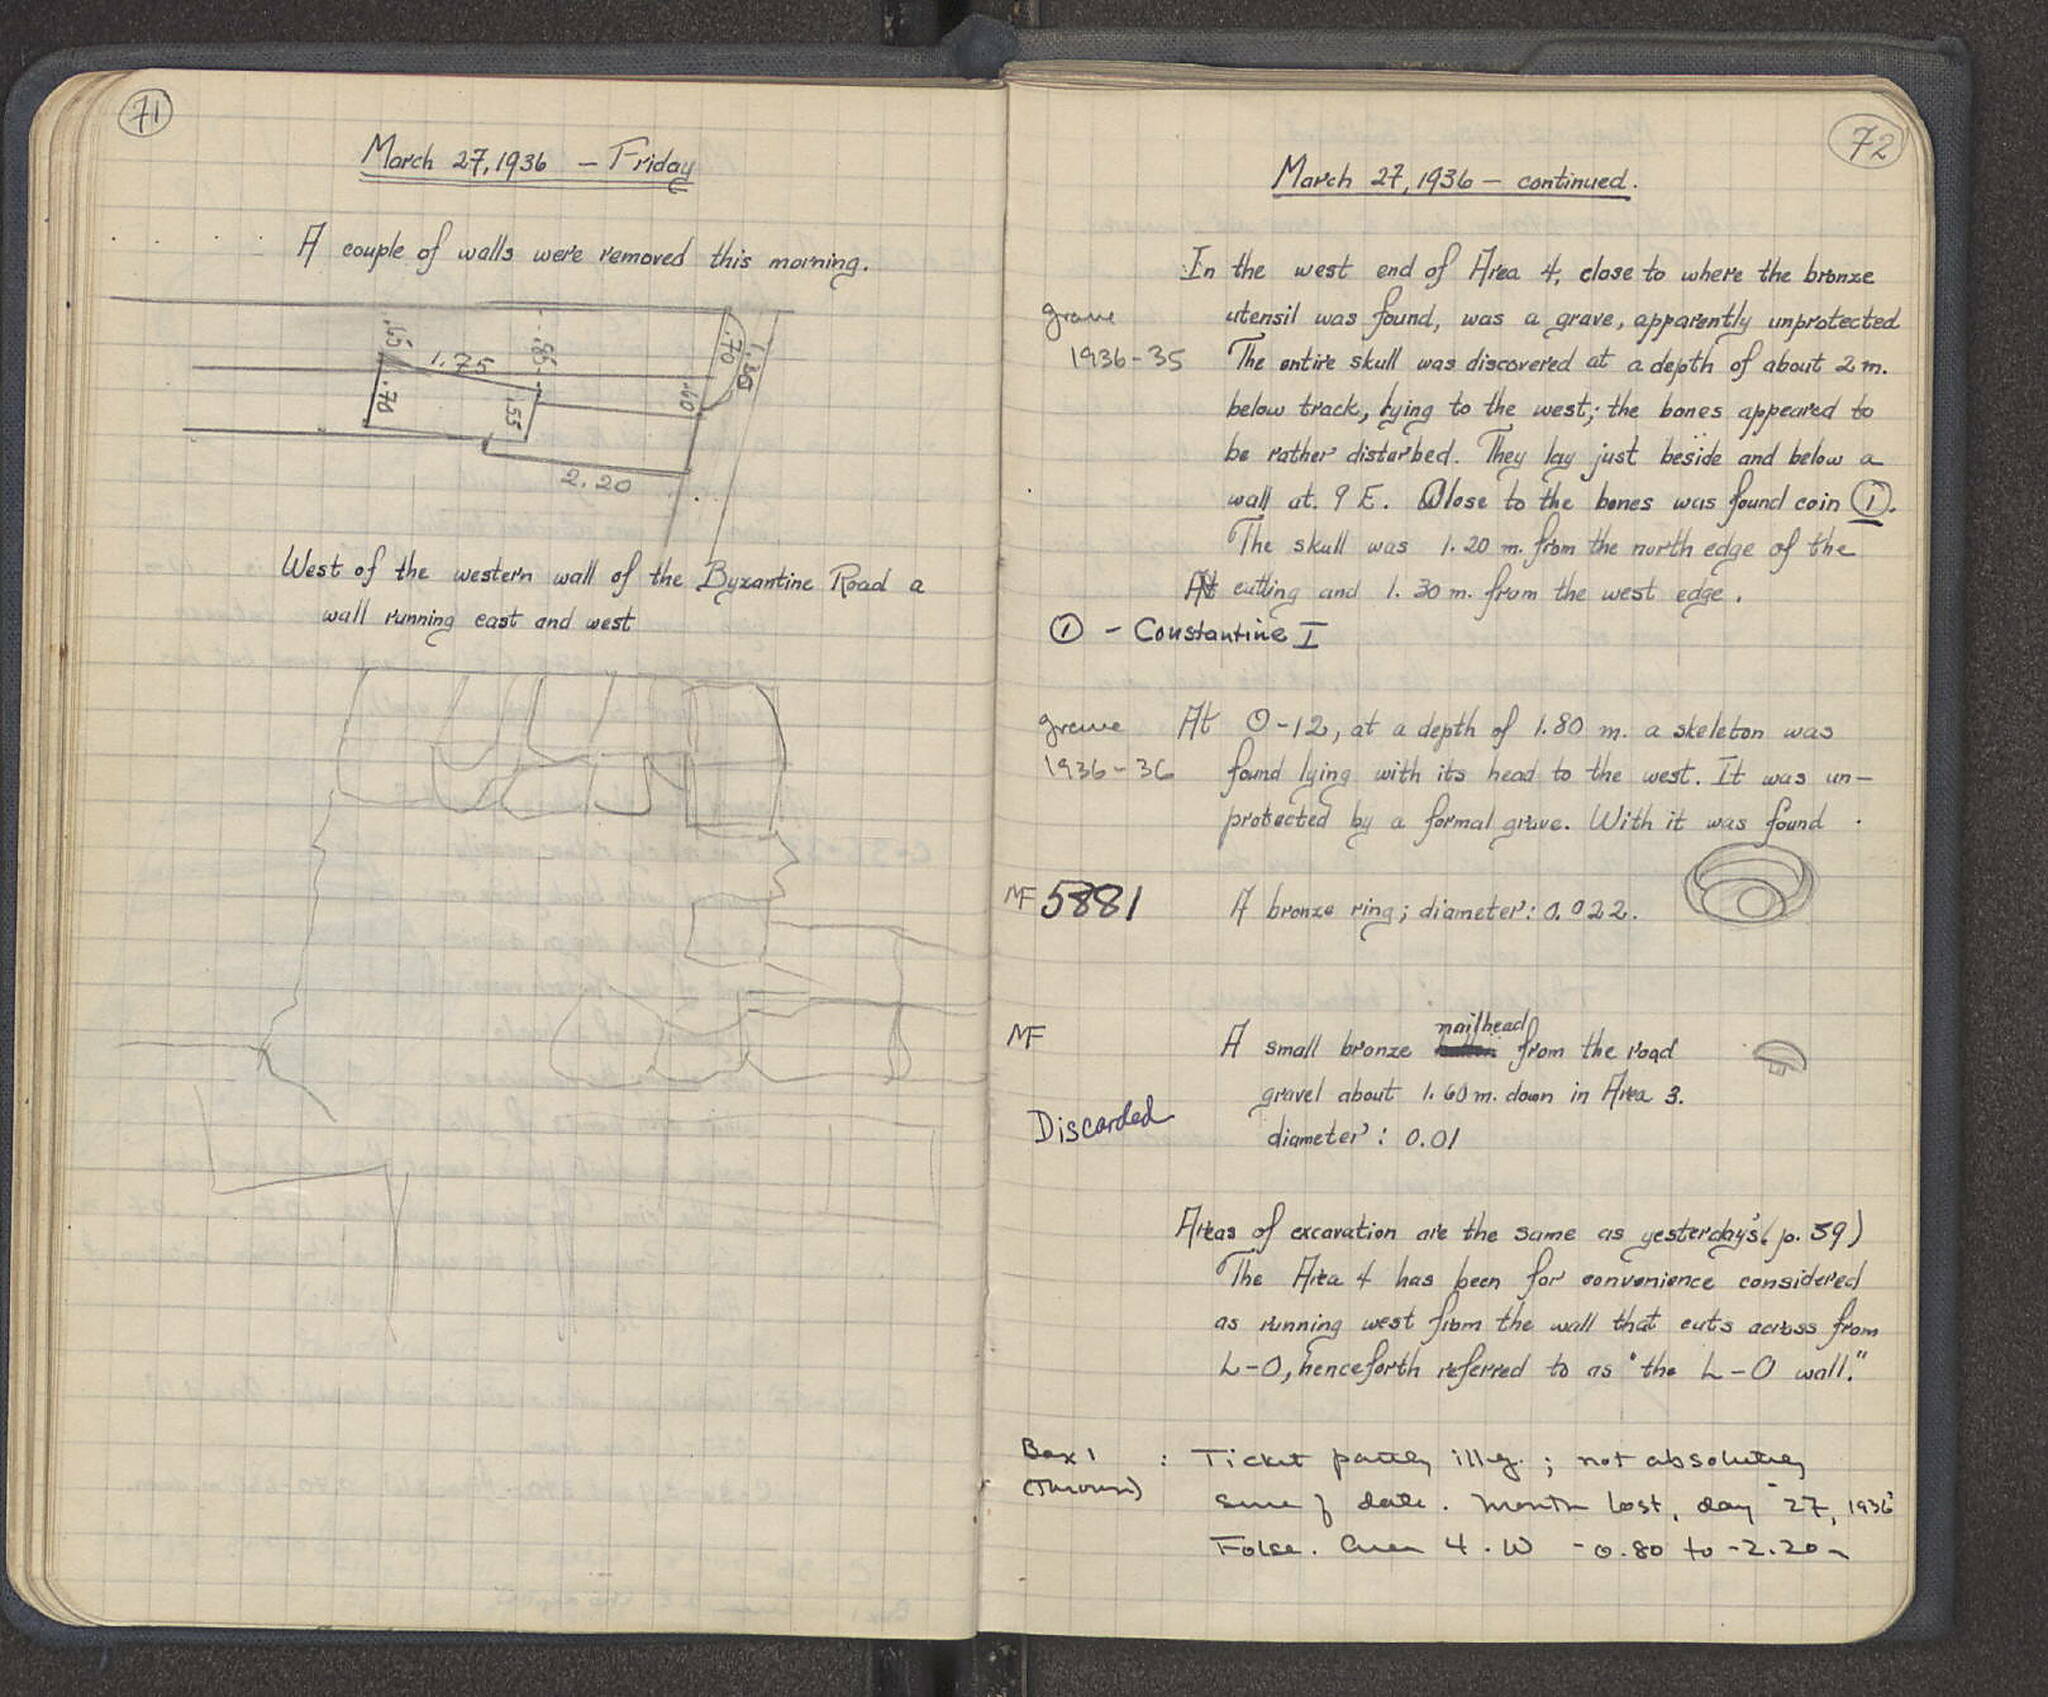 71
March 27, 1936 – Friday
A couple of walls were removed this morning.
.65
1.75
.85
.70
1.30
.70
.55
.60
2.20
West of the western wall of the Byzantine Road a
wall running east and west
72
March 27, 1936 – continued.
In the west end of Area 4, close to where the bronze
grave utensil was found, was a grave, apparently unprotected
1936-35 The entire skull was discovered at a depth of about 2 m.
below track, lying to the west; the bones appeared to
be rather disturbed. They lay just beside and below a
wall at 9 E. Close to the bones was found coin ①.
The skull was 1.20 m. from the north edge of the
cutting and 1.30 m. from the west edge.
① – Constantine I
grave At O-12, at a depth of 1.80 m. a skeleton was
1936-36 found lying with its head to the west. It was un-
protected by a formal grave. With it was found
MF 5881 A bronze ring; diameter: 0.022.
nailhead
MF A small bronze from the road
gravel about 1.60 m. down in Area 3.
Discarded diameter: 0.01
Areas of excavation are the same as yesterday's (p. 59)
The Area 4 has been for convenience considered
as running west from the wall that cuts across from
L-O, henceforth referred to as "the L-O wall."
Box 1 : Ticket partly illeg.; not absolutely
(Thrown) sure of date. Month lost, day "27, 1936"
False. Area 4. W -0.80 to -2.20m